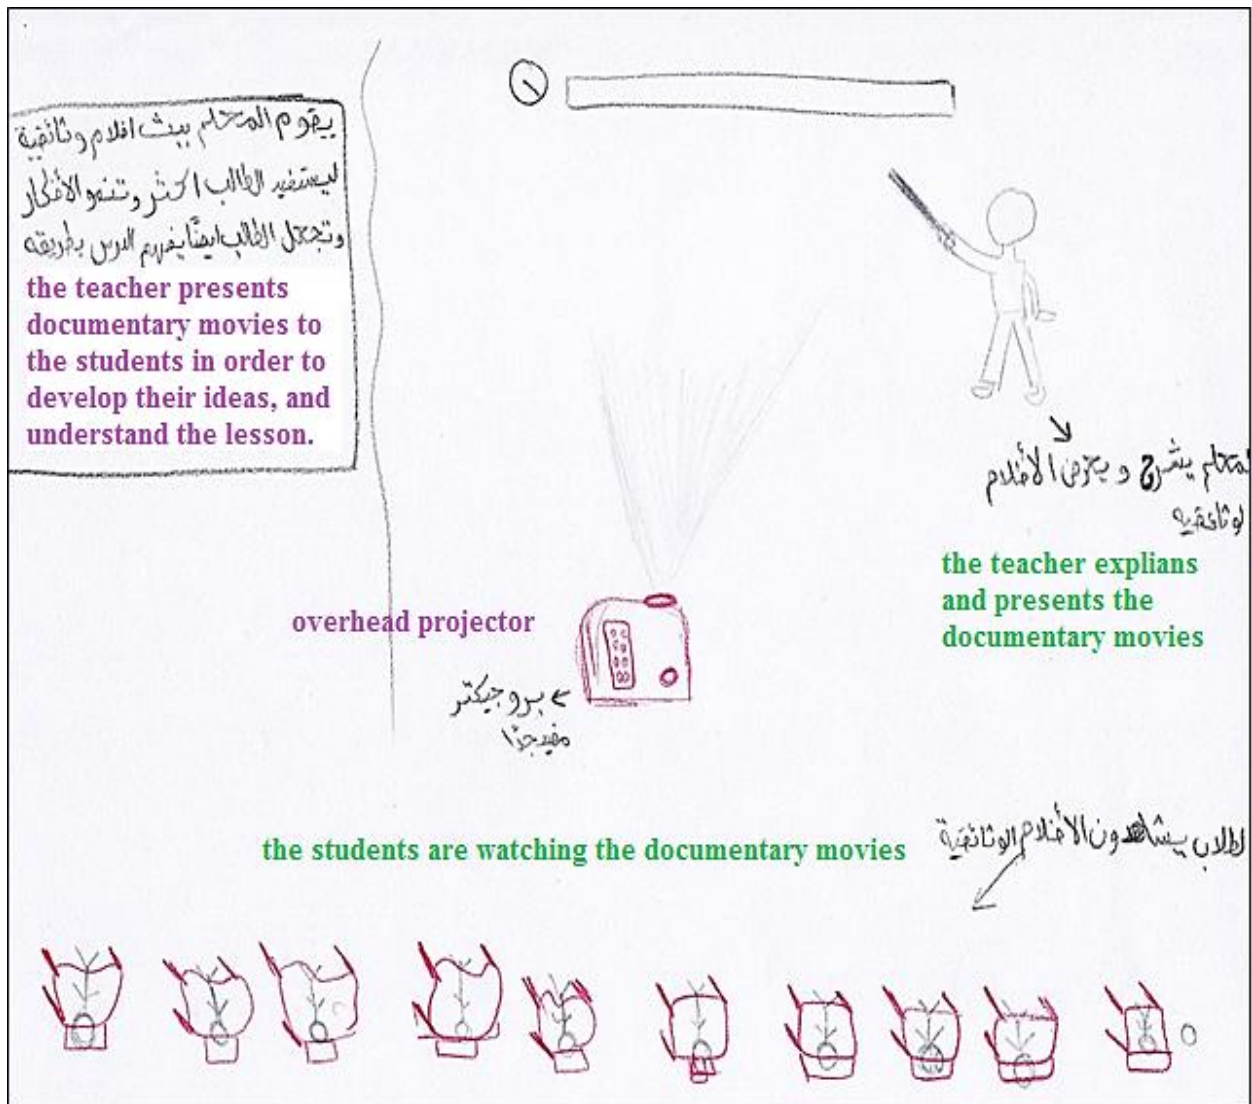 يقوم المعلم ببث افلام وثائقية
ليستفيد الطالب اكثر وتنمو الأفكار
وتجعل الطالب ايضًا يفهم الدرس بطريقه
the teacher presents
documentary movies to
the students in order to
develop their ideas, and
understand the lesson.
لمعلم يشرح و يعرض الأفلام
لوثائقيه
the teacher explians
and presents the
documentary movies
overhead projector
بروجيكتر
مفيد جدًا
the students are watching the documentary movies
لطلاب يشاهدون الأفلام الوثائقية